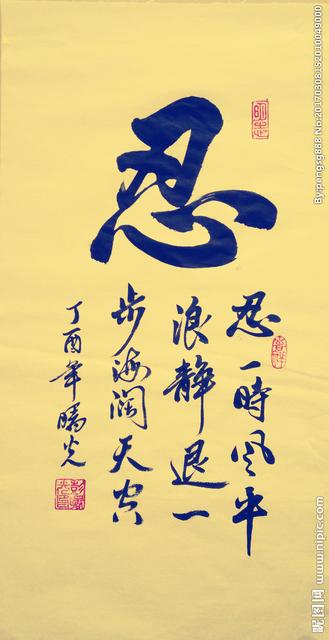 忍
忍一時風平
浪靜退一
步海闊天空
丁酉年
By:pengsg888 No:20170308152010049000
昵图网 www.nipic.com